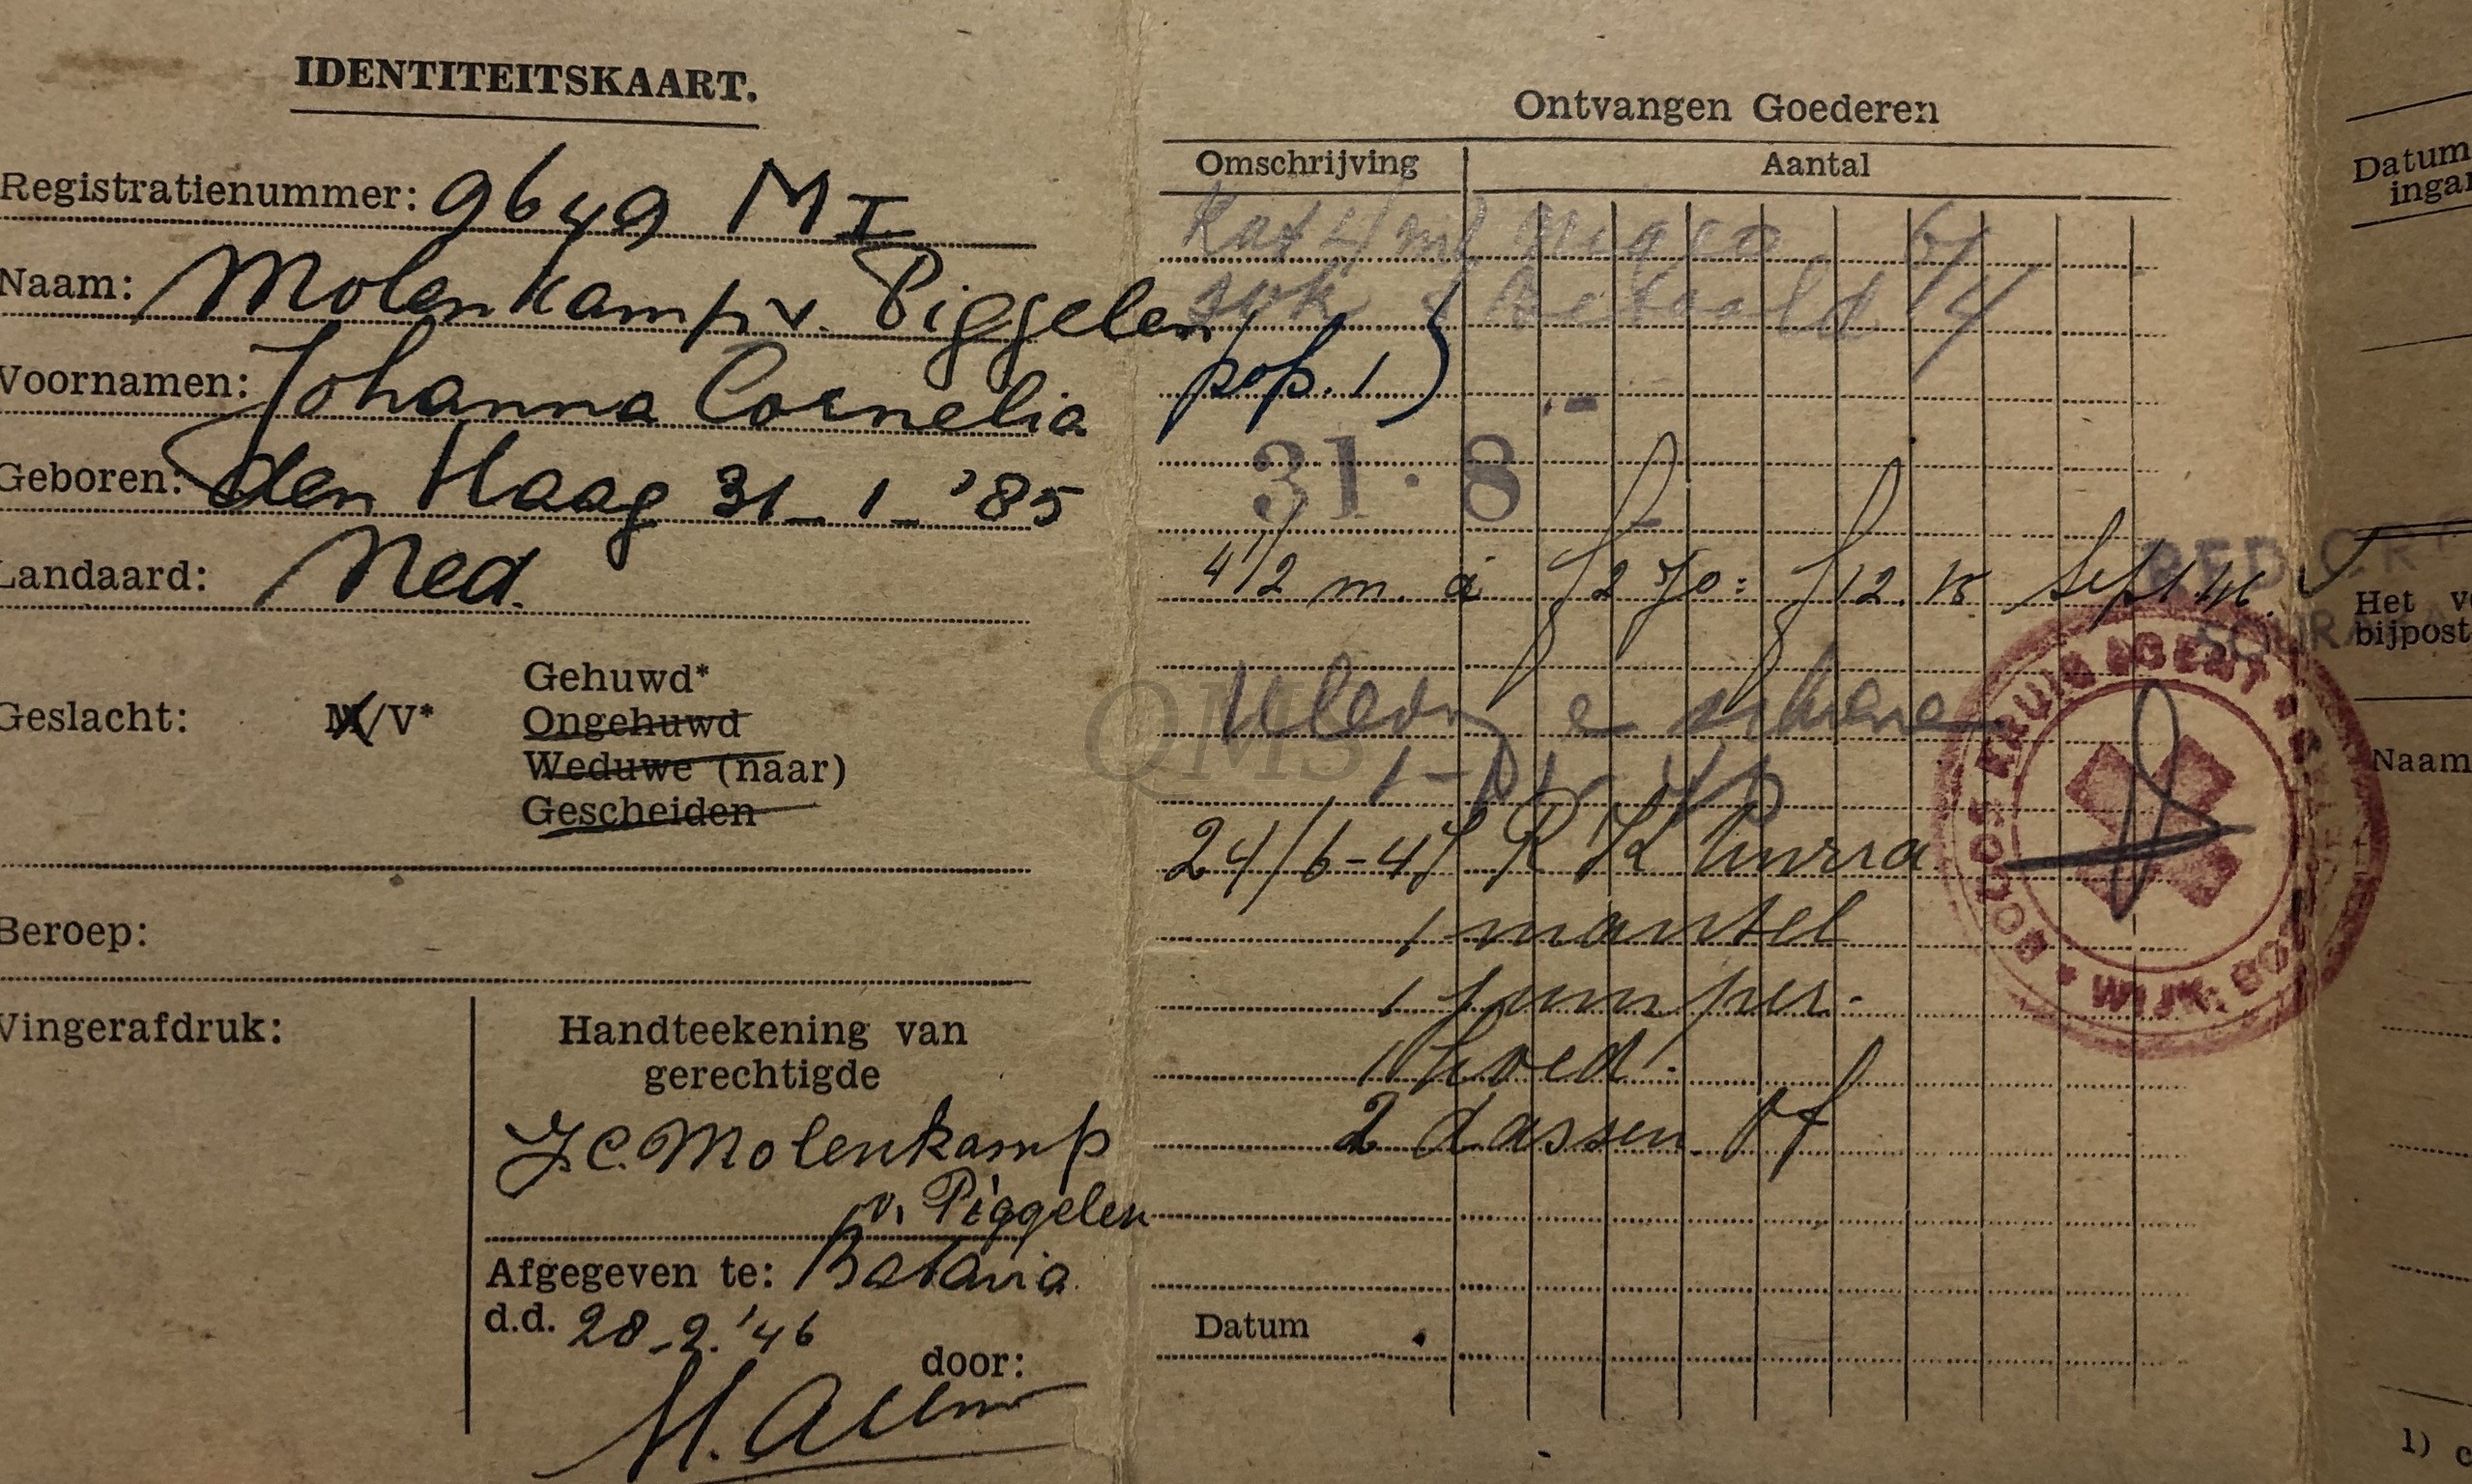 IDENTITEITSKAART.
Registratienummer: 9649 M I
Naam: Molenkamp v. Piggelen
Voornamen: Johanna Cornelia
Geboren: den Haag 31-1-'85
Landaard: Ned.
Geslacht: M/V*
Gehuwd*
Ongehuwd
Weduwe (naar)
Gescheiden
Beroep:
Vingerafdruk:
Handteekening van
gerechtigde
J.C. Molenkamp
v. Piggelen
Afgegeven te: Batavia
d.d. 28-2.'46
door:
Ontvangen Goederen
Omschrijving Aantal
betaald
pop. 1
31.8
4 1/2 m. à f 2 70: f 12.15 Sept
24/6-47 R K
1 mantel
1 jumper.
1 hoed.
2 dassen.
Datum
RED CR
KRUIS AGENT
WIJK
QMS
Datum
ingan
Het v
bijpost
Naam
1)